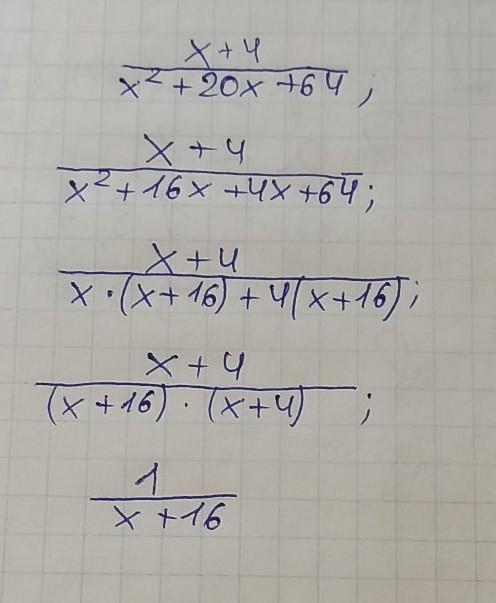 x+4
x²+20x+64;
x+4
x²+16x+4x+64;
x+4
x·(x+16)+4(x+16);
x+4
(x+16)·(x+4);
1
x+16